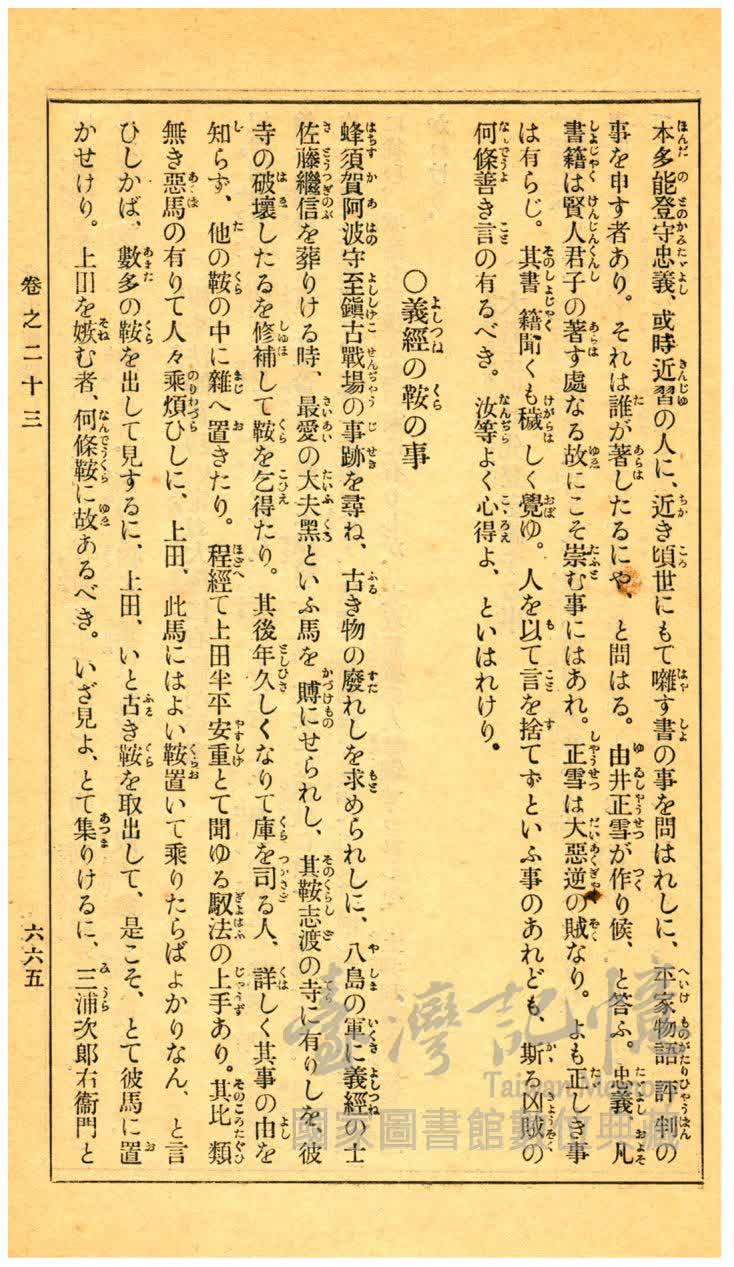 本多能登守忠義、或時近習の人に、近き頃世にもて囃す書の事を問はれしに、平家物語評判の
事を申す者あり。それは誰が著したるにや、と問はる。由井正雪が作り候、と答ふ。忠義、凡
書籍は賢人君子の著す處なる故にこそ崇む事にはあれ。正雪は大惡逆の賊なり。よも正しき事
は有らじ。其書籍聞くも穢しく覺ゆ。人を以て言を捨てずといふ事のあれども、斯る凶賊の
何條善き言の有るべき。汝等よく心得よ、といはれけり。
〇義經の鞍の事
蜂須賀阿波守至鎭古戰場の事跡を尋ね、古き物の廢れしを求められしに、八島の軍に義經の士
佐藤繼信を葬りける時、最愛の大夫黑といふ馬を賻にせられし、其鞍志渡の寺に有りしを、彼
寺の破壞したるを修補して鞍を乞得たり。其後年久しくなりて庫を司る人、詳しく其事の由を
知らず、他の鞍の中に雜へ置きたり。程經て上田半平安重とて聞ゆる馭法の上手あり。其比類
無き惡馬の有りて人々乘煩ひしに、上田、此馬にはよい鞍置いて乘りたらばよかりなん、と言
ひしかば、數多の鞍を出して見するに、上田、いと古き鞍を取出して、是こそ、とて彼馬に置
かせけり。上田を嫉む者、何條鞍に故あるべき。いざ見よ、とて集りけるに、三浦次郎右衞門と
卷之二十三
六六五
臺灣記憶
Taiwan Memory
國家圖書館數位典藏